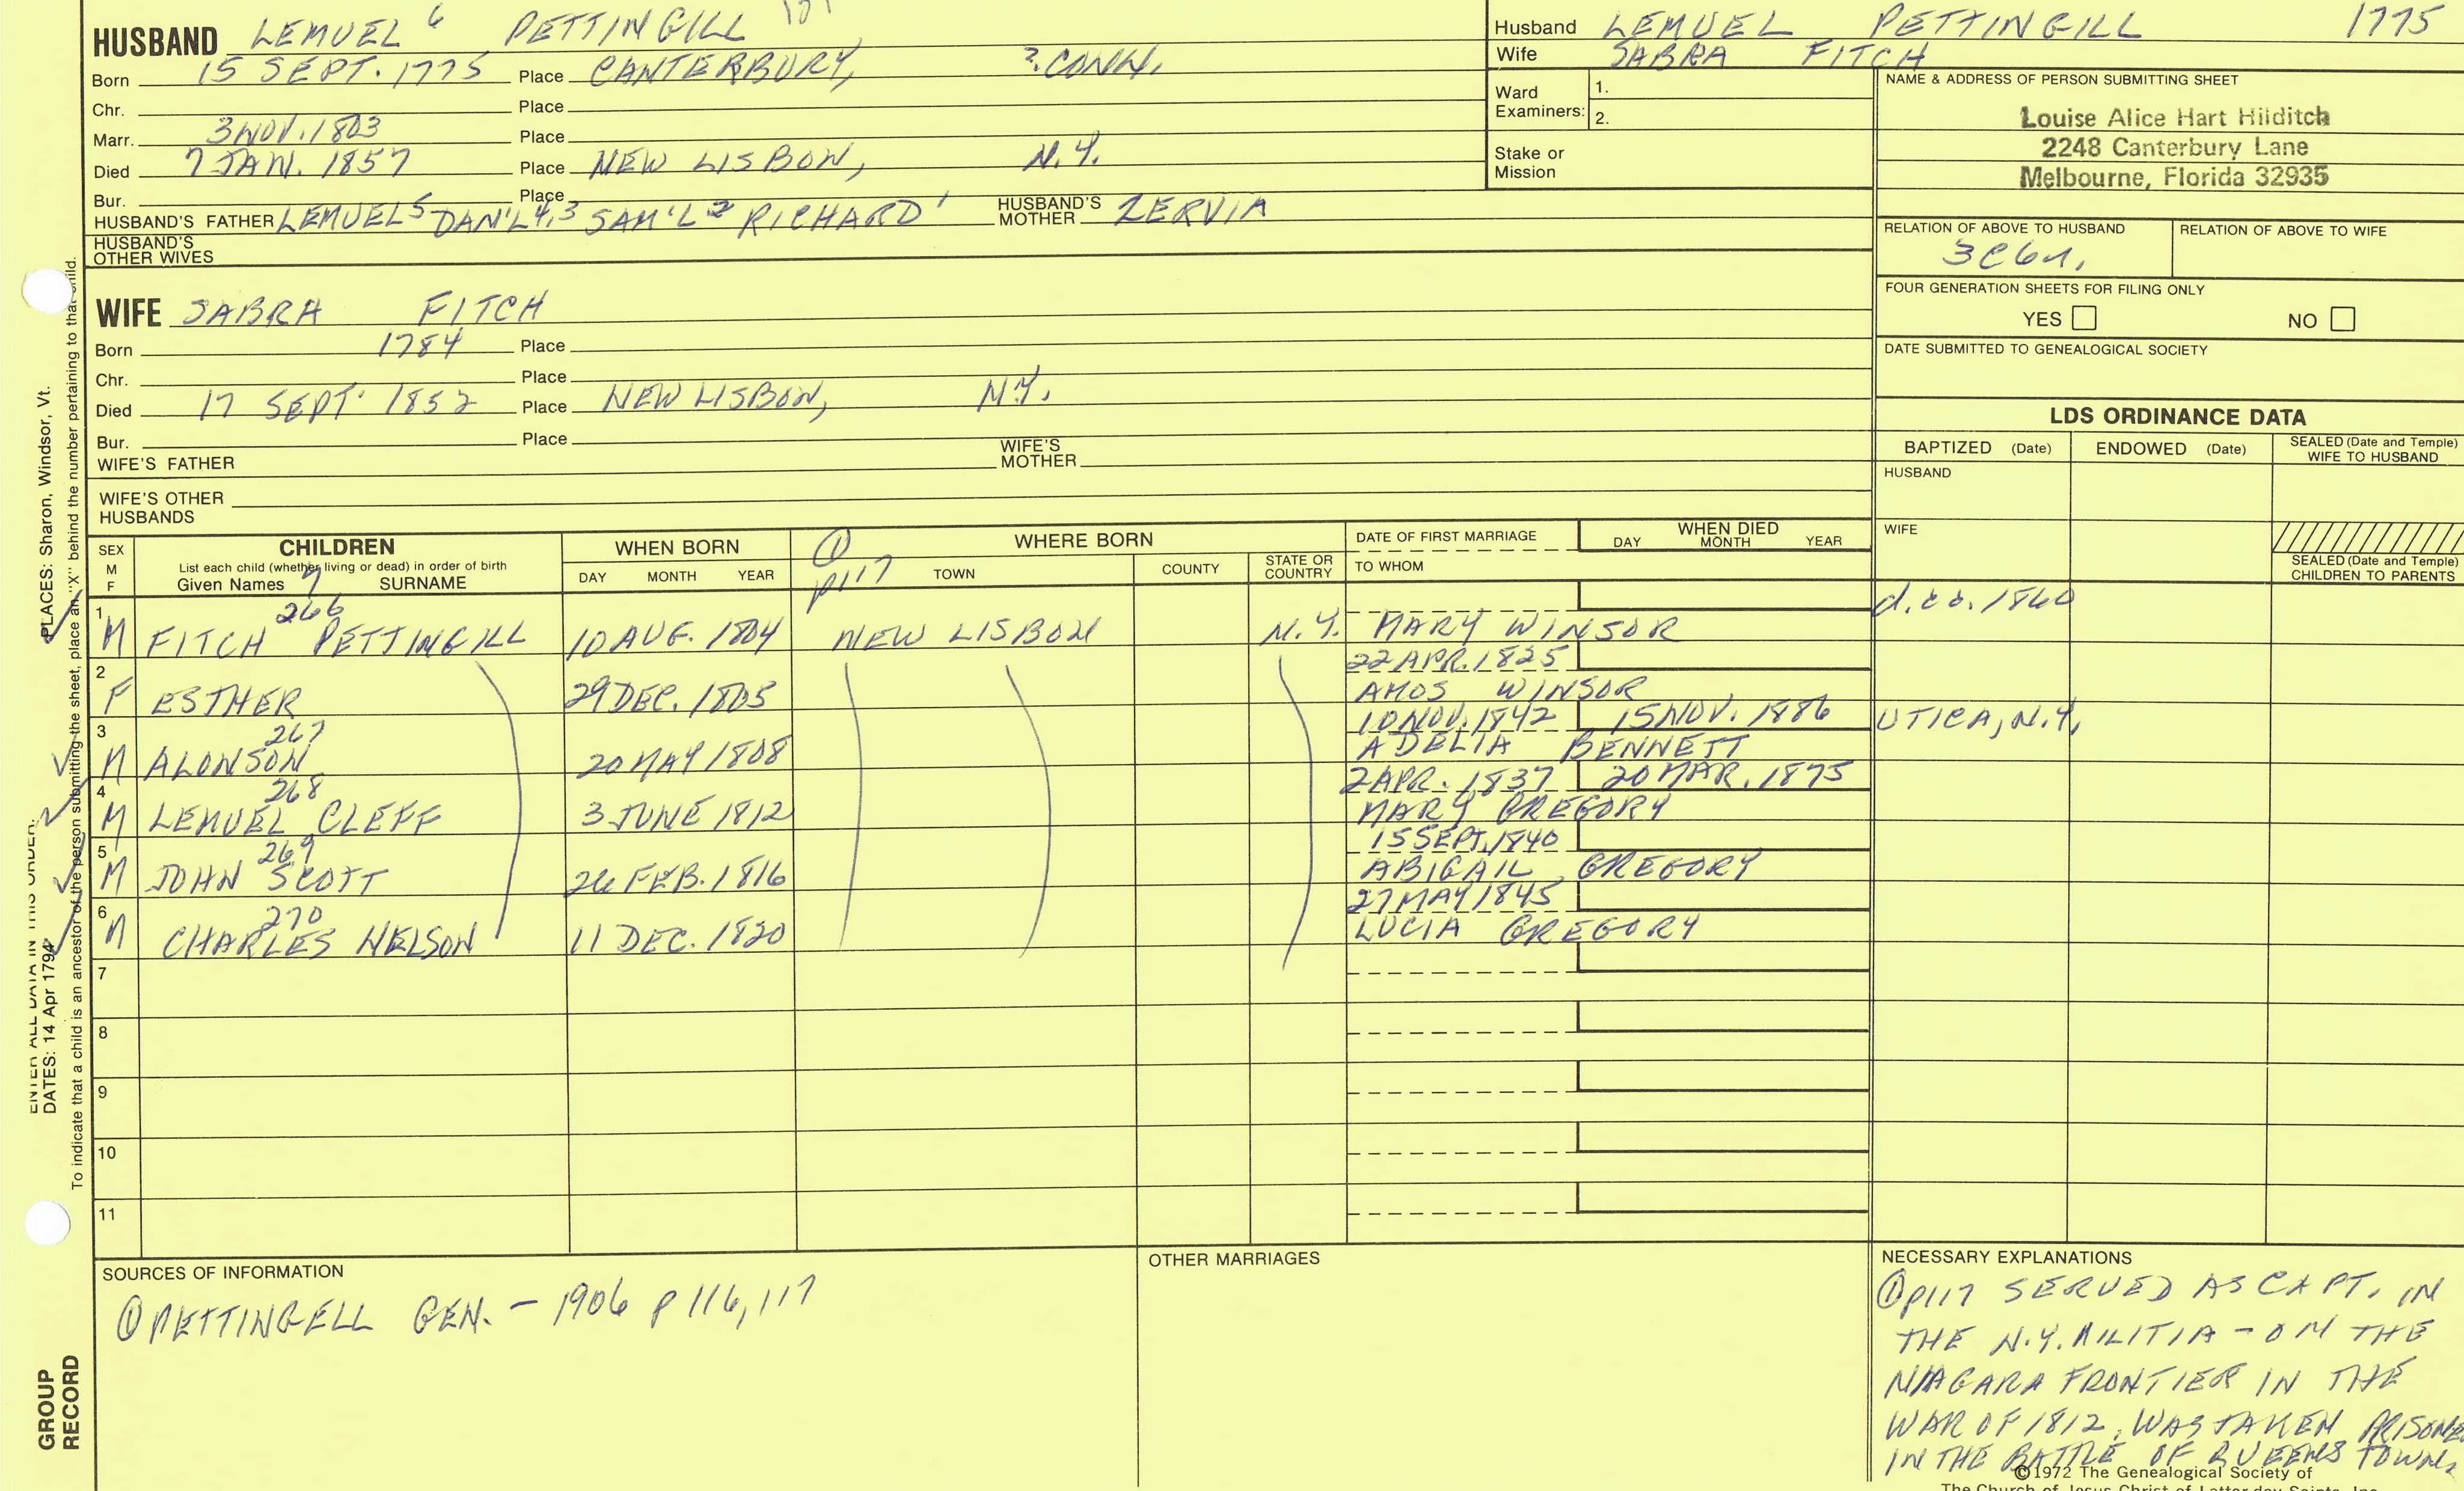 HUSBAND LEMUEL 6 PETTINGILL
Born 15 SEPT. 1775 Place CANTERBURY, ? CONN.
Chr. Place
Marr. 3 NOV. 1803 Place
Died 7 JAN. 1857 Place NEW LISBON, N.Y.
Bur. Place
HUSBAND'S FATHER LEMUEL 5 DAN'L 4,3 SAM'L 2 RICHARD 1 HUSBAND'S MOTHER ZERVIA
HUSBAND'S OTHER WIVES
WIFE SABRA FITCH
Born 1784 Place
Chr. Place
Died 17 SEPT. 1852 Place NEW LISBON, N.Y.
Bur. Place
WIFE'S FATHER WIFE'S MOTHER
WIFE'S OTHER HUSBANDS
Husband LEMUEL PETTINGILL 1775
Wife SABRA FITCH
Ward Examiners: 1.
2.
Stake or Mission
NAME & ADDRESS OF PERSON SUBMITTING SHEET
Louise Alice Hart Hilditch
2248 Canterbury Lane
Melbourne, Florida 32935
RELATION OF ABOVE TO HUSBAND RELATION OF ABOVE TO WIFE
3C6r.
FOUR GENERATION SHEETS FOR FILING ONLY
YES NO
DATE SUBMITTED TO GENEALOGICAL SOCIETY
LDS ORDINANCE DATA
BAPTIZED (Date) ENDOWED (Date) SEALED (Date and Temple) WIFE TO HUSBAND
HUSBAND
WIFE
SEALED (Date and Temple) CHILDREN TO PARENTS
SEX M F CHILDREN WHEN BORN WHERE BORN DATE OF FIRST MARRIAGE WHEN DIED
List each child (whether living or dead) in order of birth
Given Names 7 SURNAME DAY MONTH YEAR ① p117 TOWN COUNTY STATE OR COUNTRY TO WHOM DAY MONTH YEAR
1 266 d. ca. 1860
M FITCH PETTINGILL 10 AUG. 1804 NEW LISBON N.Y. MARY WINSOR
2 22 APR. 1825
F ESTHER 29 DEC. 1805 AMOS WINSOR
3 267 10 NOV. 1842 15 NOV. 1886 UTICA, N.Y.
M ALONSON 20 MAY 1808 ADELIA BENNETT
4 268 2 APR. 1837 20 MAR. 1875
M LEMUEL CLEFF 3 JUNE 1812 MARY GREGORY
5 269 15 SEPT. 1840
M JOHN SCOTT 26 FEB. 1816 ABIGAIL GREGORY
6 270 27 MAY 1845
M CHARLES NELSON 11 DEC. 1820 LUCIA GREGORY
7
8
9
10
11
SOURCES OF INFORMATION
① PETTINGELL GEN. - 1906 P 116, 117
OTHER MARRIAGES
NECESSARY EXPLANATIONS
① p117 SERVED AS CAPT. IN
THE N.Y. MILITIA - ON THE
NIAGARA FRONTIER IN THE
WAR OF 1812. WAS TAKEN PRISONE
IN THE BATTLE OF QUEENSTOWN.
©1972 The Genealogical Society of
The Church of Jesus Christ of Latter-day Saints, Inc.
ENTER ALL DATA IN THIS ORDER:
DATES: 14 Apr 1794
PLACES: Sharon, Windsor, Vt.
To indicate that a child is an ancestor of the person submitting the sheet, place an "X" behind the number pertaining to that child.
GROUP RECORD